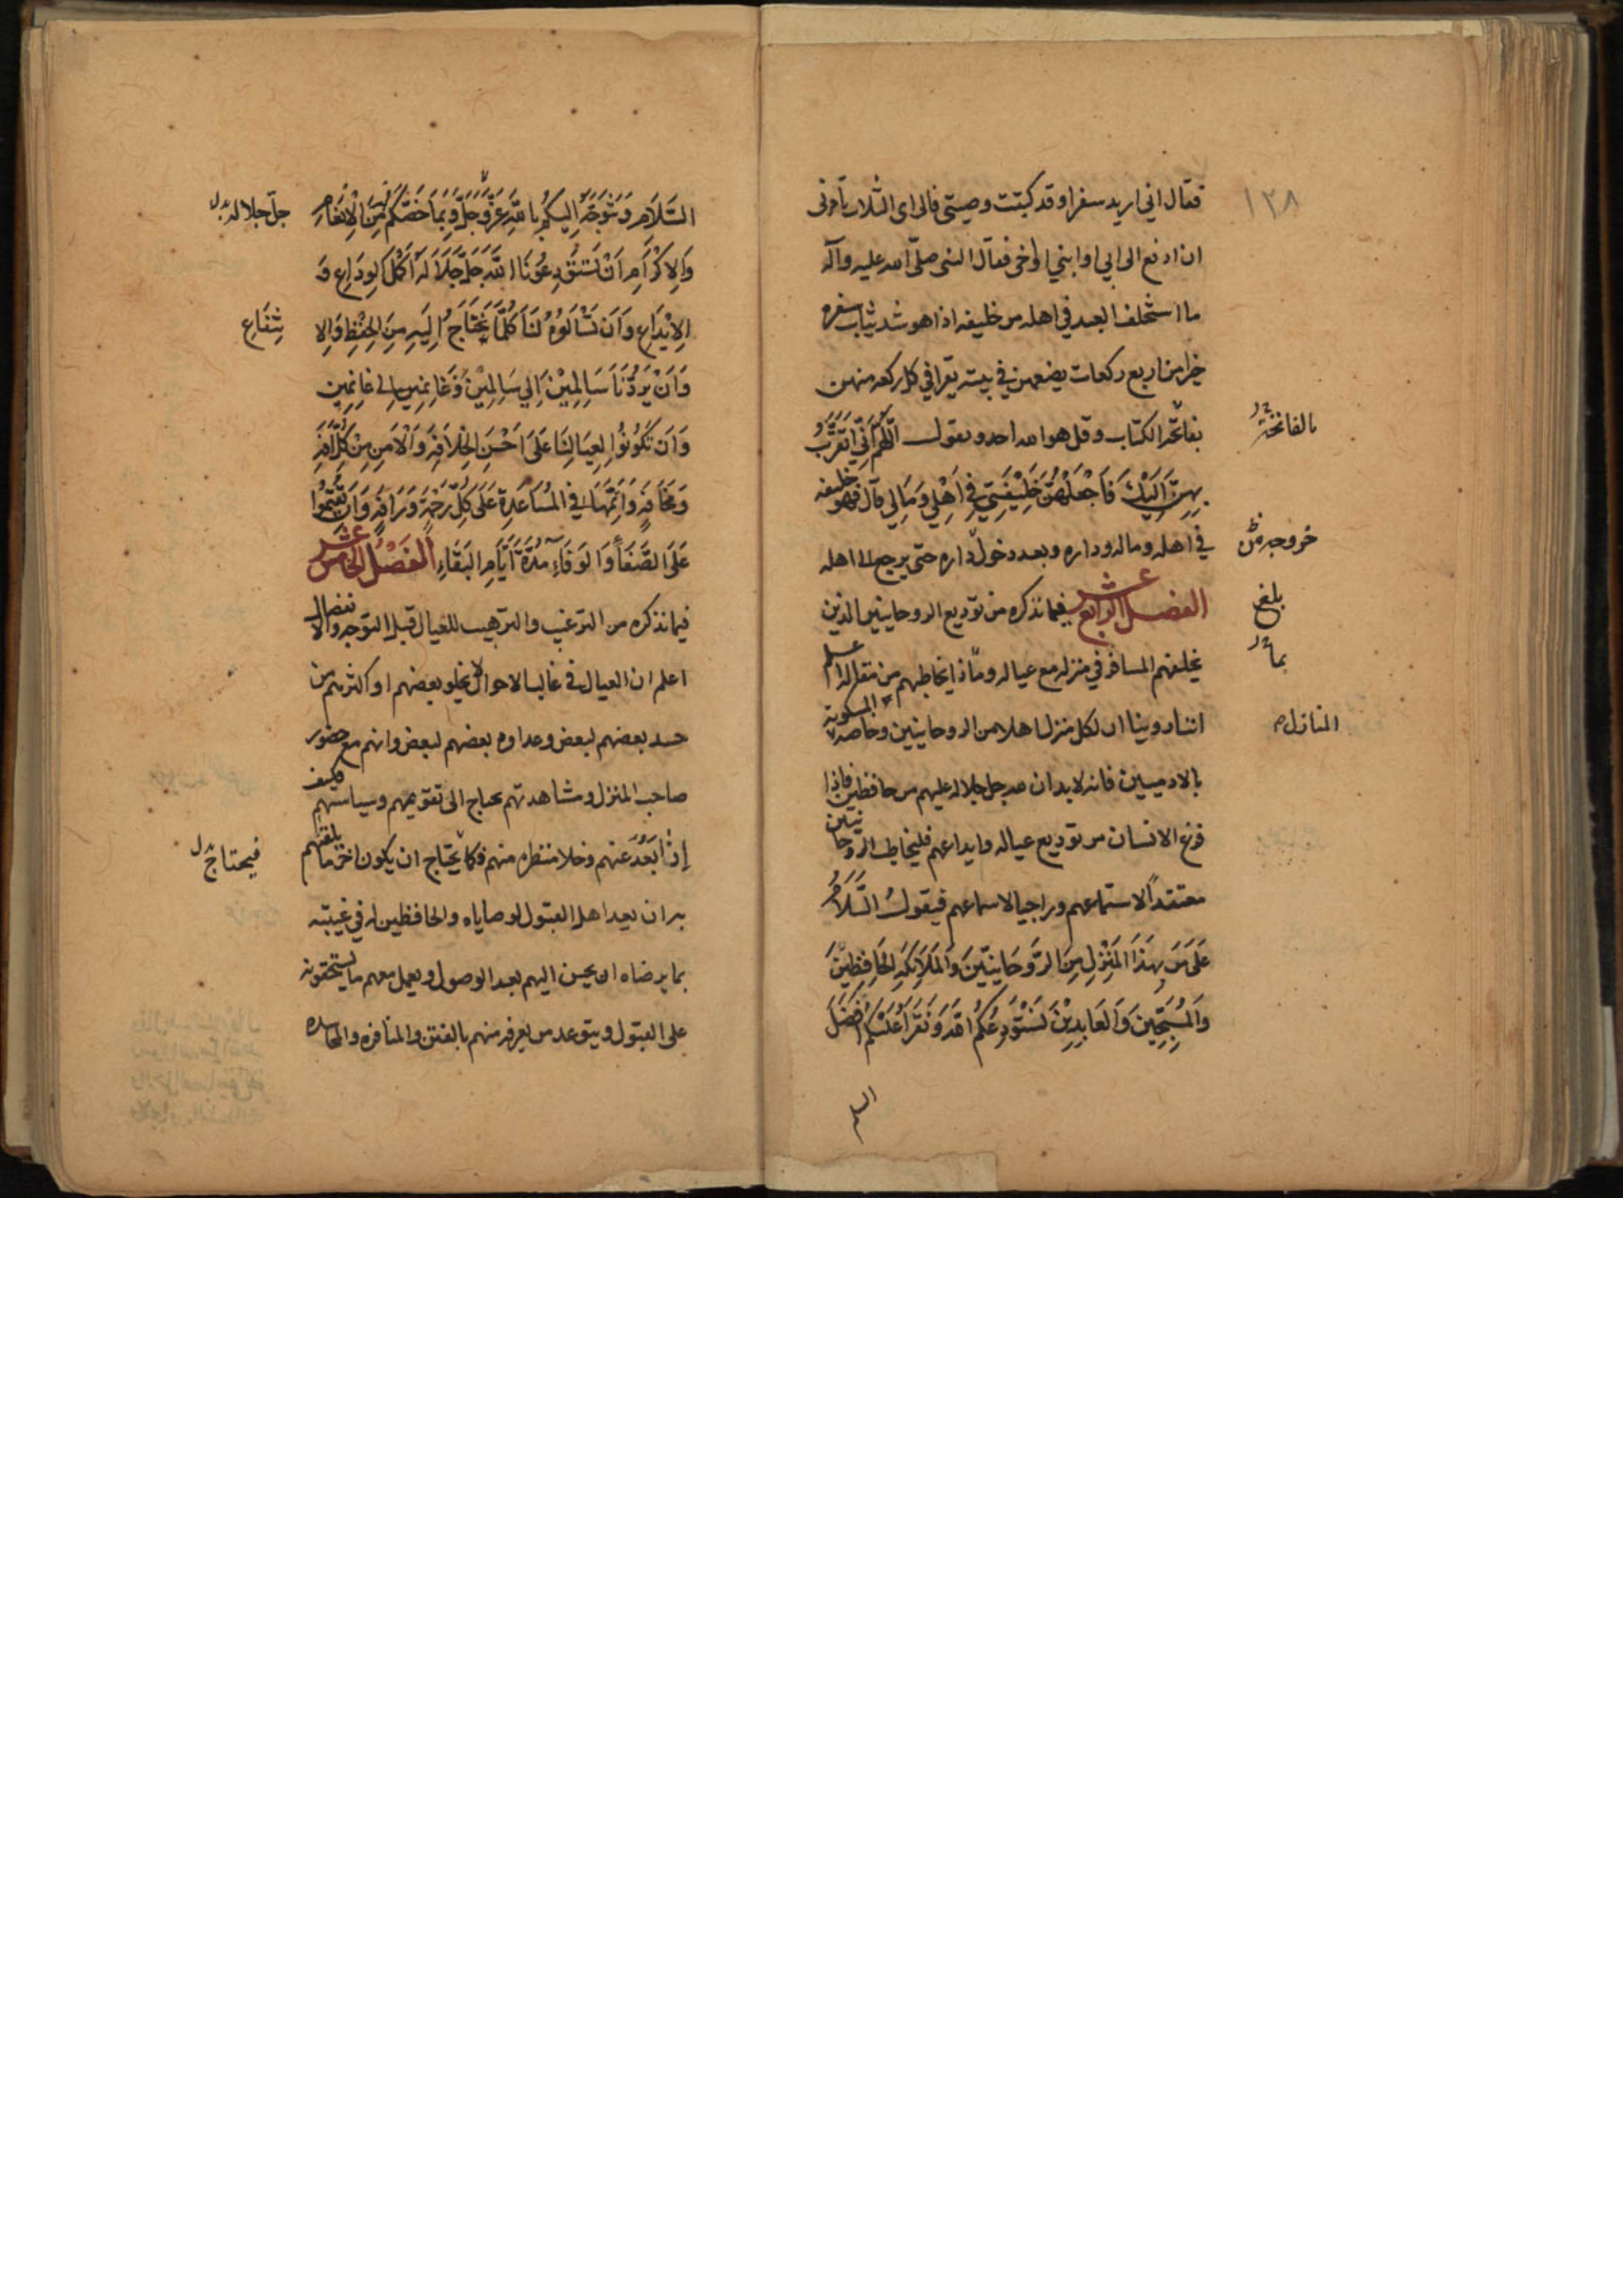 ١٢٨
فقال اني اريد سفرا وقد كتبت وصيتي فالى اى الثلاث تأمرنى
ان ادفع الى ابي او ابني او اخى فقال النبى صلّى الله عليه وآله
ما استخلف العبد في اهله من خليفه اذا هو شد ثياب سفره
خيرا من اربع ركعات يضعهن في بيته يقرا في كل ركعه منهن
بفاتحة الكتاب وقل هو الله احد ويقول اللّهُمَّ اِنّي اَتَقَرَّبُ
بالفاتحة
بِهِنَّ اِلَيْكَ فَاجْعَلْهُنَّ خَلِيْفَتِي فِي اَهْلِي وَمَالِي قال فهو خليفه
في اهله وماله وداره وبعد دخول داره حتى يرجع الى اهله
خروجه من
الفصل الرابع عشر فيما نذكره من توديع الروحانيين الذين
بلغ
يخلفهم المسافر في منزله مع عياله وماذا يخاطبهم من مقاله اعلم
بما
اننا روينا ان لكل منزل اهلا من الروحانيين وخاصه المسكونة
المنازل
بالادميين فانه لابد ان لله جل جلاله عليهم من حافظين فاذا
فرغ الانسان من توديع عياله وايداعهم فليخاطب الروحانيين
معتقدًا لاستماعهم وراجيا لاسماعهم فيقولُ السَّلَامُ
عَلَى مَن بِهَذَا المَنْزِلِ مِنَ الرَّوحَانِيّينَ وَالمَلَائِكَةِ الحَافِظِيْنَ
وَالمُسَبِّحِينَ وَالعَابِدِيْنَ نَسْتَوْدِعُكُمُ الله وَنَقْرَأُ عَلَيْكُمْ اَفْضَلَ
السلم
السَّلَامِ وَنَتَوَجَّهُ اِليَكُمْ بِاللهِ عَزَّوَجَلَّ وَبِمَا خَصَّكُمْ بِهِ مِنَ الْاِنْعَامِ
جلّ جلاله
وَالِاكْرَامِ اَنْ تَسْتَوْدِعُونَا اللهَ جَلَّ جَلَالَهُ اَكْمَلَ الوِدَاعِ وَ
الاِيْدَاعِ وَاَن تَسْاَلُوهُ لَنَا كُلَّمَا نَحْتَاجُ اِلَيهِ مِنَ الحِفْظِ وَالِا
نتِفَاعِ
وَاَنْ يَرُدَّنَا سَالِمِيْنَ اِلى سَالِمِيْنَ وَغَانِمِينَ الى غَانِمِين
وَاَن تَكُونُوا لِعِيَالِنَا عَلَى اَحْسَنِ الخِلَافَةِ وَالاَمْنِ مِنْ كُلِّ آفَةٍ
وَمَخَافَةٍ وَاَتِمَّهَا في المُسَاعَدَةِ عَلَى كُلِّ رَحْمَةٍ وَرَافَةٍ وَاَن تُقِيْمُوا
عَلَى الصَّفَاءِ وَالوَفَاءِ مُدَّةَ اَيَّامِ البَقَاءِ الفَصْلُ الخامس عشر
فيما نذكره من الترغيب والترهيب للعيال قبل التوجه والانفصال
اعلم ان العيال في غالب الاحوال لا يخلو بعضهم او اكثرهم من
حسد بعضهم لبعض وعداوه بعضهم لبعض وانهم مع حضور
صاحب المنزل ومشاهدتهم يحتاج الى تقويمهم وسياستهم فكيف
اِذا بَعُدَ عنهم وخلا منظره منهم فكما يحتاج ان يكون اخر ما يلقهم
فيحتاج
به ان يعد اهل القبول لوصاياه والحافظين له في غيبته
بما يرضاه ان يحسن اليهم بعد الوصول ويعمل معهم ما يستحقونه
على القبول ويتوعد من يعرفه منهم بالفتن والمنافره والمحاسده